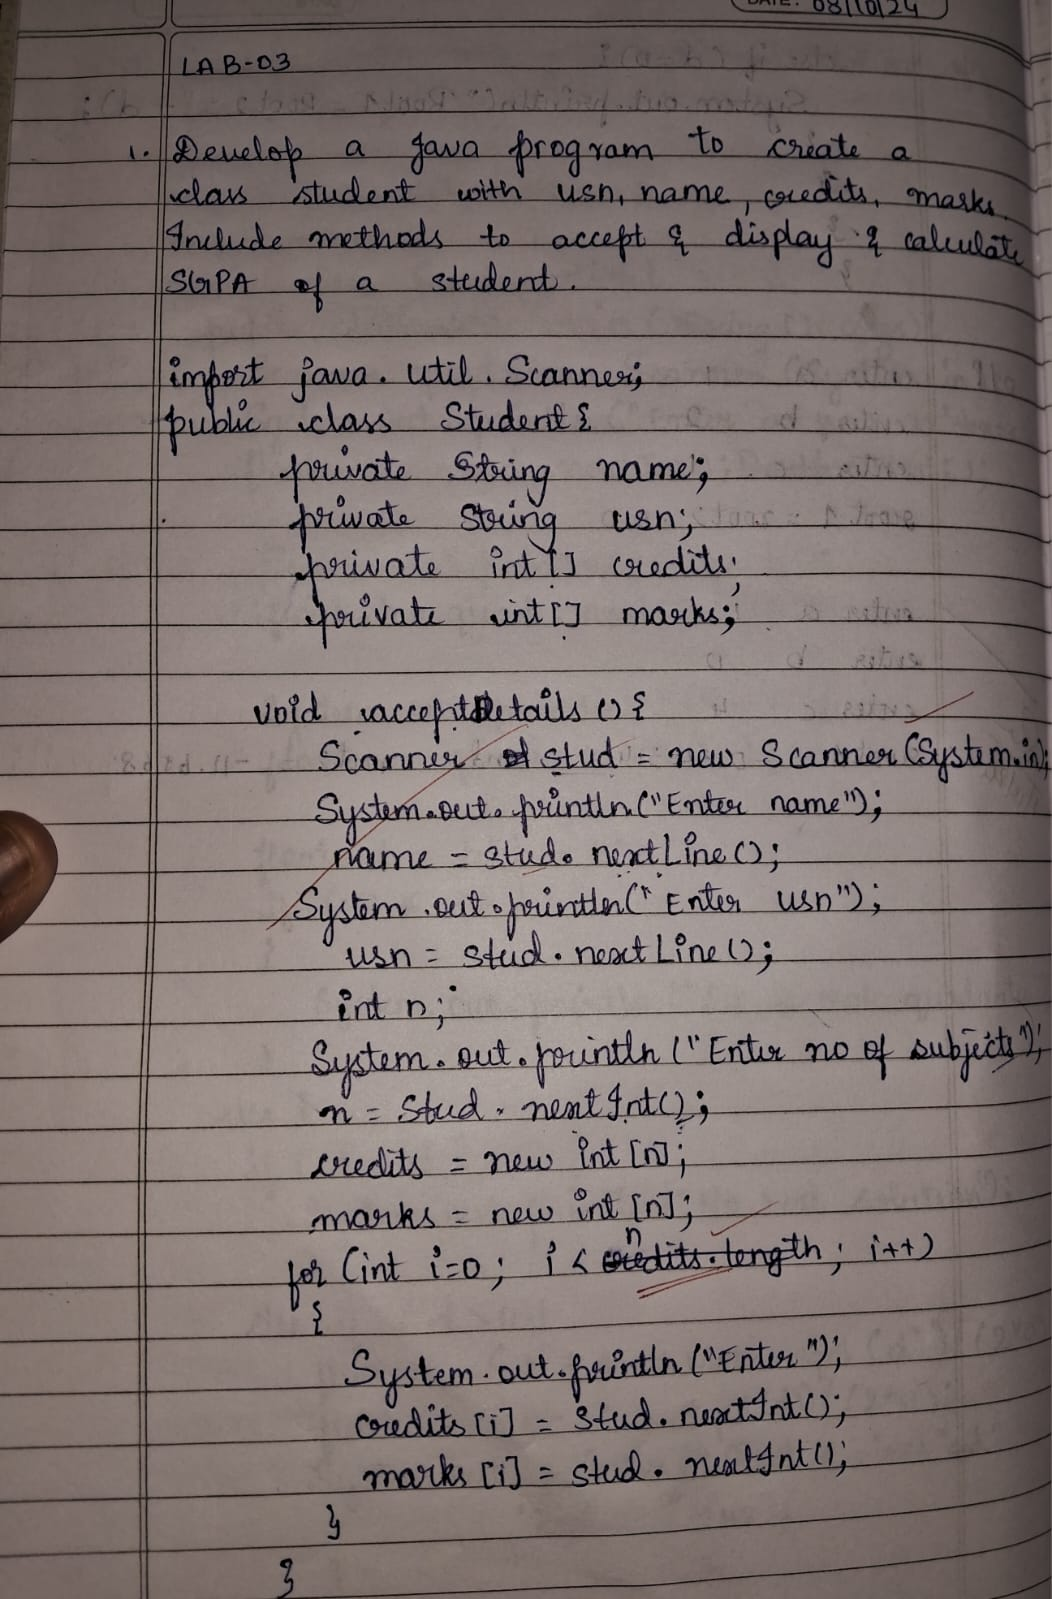 DATE: 08/10/24
LAB-03
1. Develop a Java program to create a
class student with usn, name, credits, marks.
Include methods to accept & display & calculate
SGPA of a student.
import java.util.Scanner;
public class Student {
private String name;
private String usn;
private int[] credits;
private int[] marks;
void acceptDetails () {
Scanner stud = new Scanner (System.in);
System.out.println("Enter name");
name = stud.nextLine();
System.out.println("Enter usn");
usn = stud.nextLine();
int n;
System.out.println ("Enter no of subjects");
n = stud.nextInt();
credits = new int [n];
marks = new int [n];
for (int i=0; i < n; i++)
{
System.out.println ("Enter");
credits [i] = stud.nextInt();
marks [i] = stud.nextInt();
}
}